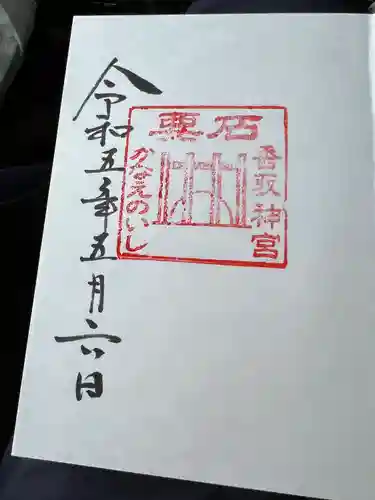 石要
香取神宮
かなえのいし
令和五年五月六日